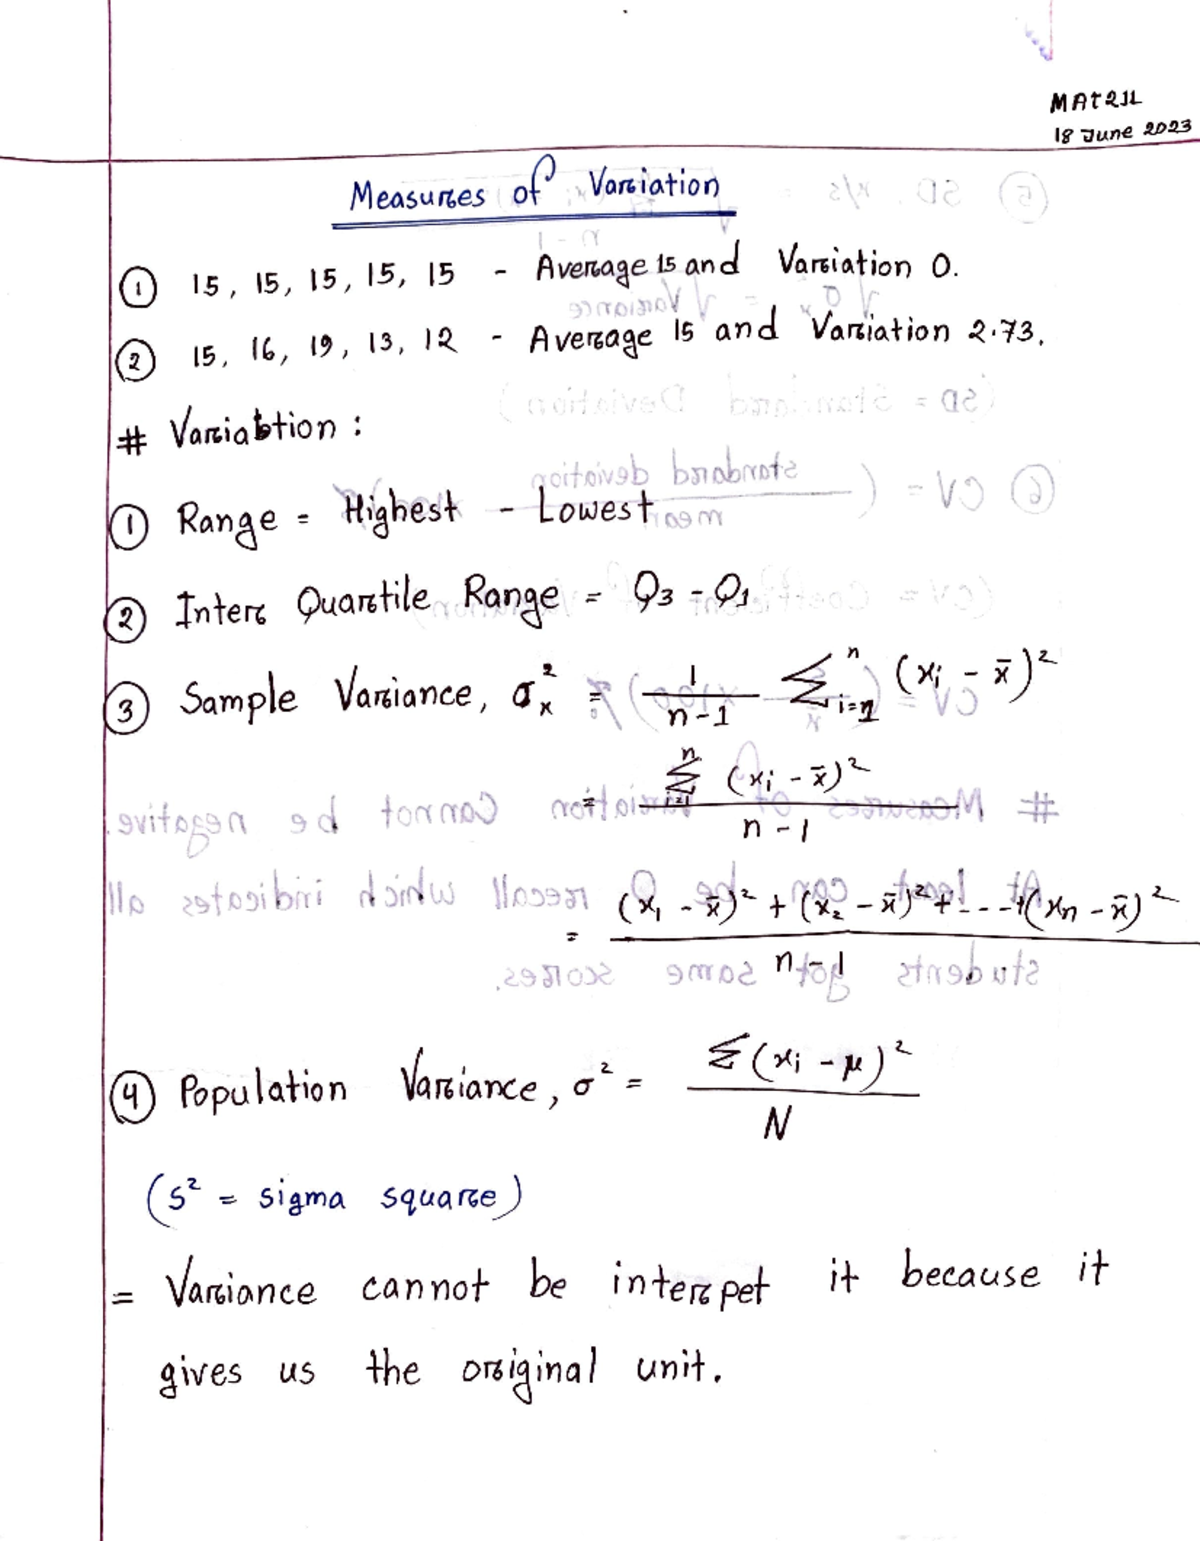 MAT211
18 June 2023
Measures of Variation
① 15, 15, 15, 15, 15 - Average 15 and Variation 0.
② 15, 16, 19, 13, 12 - Average 15 and Variation 2.73.
# Variabtion :
① Range = Highest - Lowest
② Inter Quartile Range = Q₃ - Q₁
③ Sample Variance, σₓ² = 1/(n-1) Σⁿᵢ₌₁ (xᵢ - x̄)²
= Σⁿᵢ₌₁ (xᵢ - x̄)² / (n - 1)
= ((x₁ - x̄)² + (x₂ - x̄)² + ... + (xₙ - x̄)²) / (n - 1)
④ Population Variance, σ² = Σ(xᵢ - μ)² / N
(s² = sigma square)
= Variance cannot be interpet it because it
gives us the original unit.